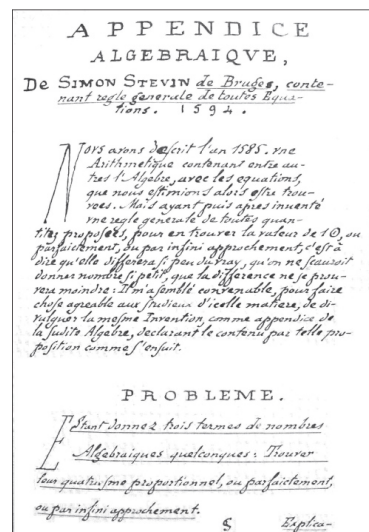 APPENDICE
ALGEBRAIQVE,
De SIMON STEVIN de Bruges, conte-
nant regle generale de toutes Equa-
tions. 1594.
Novs avons descrit l'an 1585. vne
Arithmetique contenant entre au-
tres l'Algebre, avec les equations,
que nous estimions alors estre trou-
vees. Mais ayant puis apres inventé
vne regle generale de toutes quan-
titez proposées, pour en trouver la valeur de 1①, ou
parfaictement, ou par infini approchement, c'est à
dire qu'elle differera si peu du vray, qu'on ne sçauroit
donner nombre si petit, que la difference ne se trou-
vera moindre: Il m'a semblé convenable, pour faire
chose agreable aux studieux d'icelle matiere, de di-
vulguer la mesme Invention, comme appendice de
la susdite Algebre, declarant le contenu par telle pro-
position comme s'ensuit.
PROBLEME.
Estant donnez trois termes de nombres
Algebraiques quelconques: Trouver
leur quatriesme proportionel, ou parfaictement,
ou par infini approchement.
Explica-